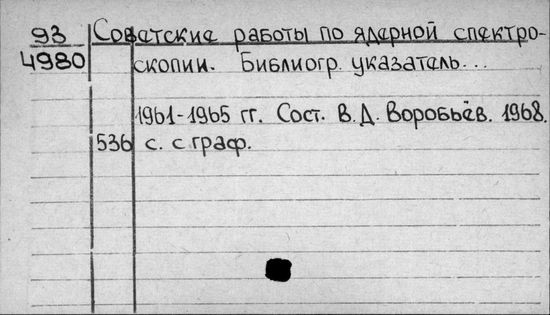 93 Советские работы по ядерной спектро-
4980 скопии. Библиогр. указатель...
1961-1965 гг. Сост. В.Д. Воробьёв. 1968.
536 с. с граф.